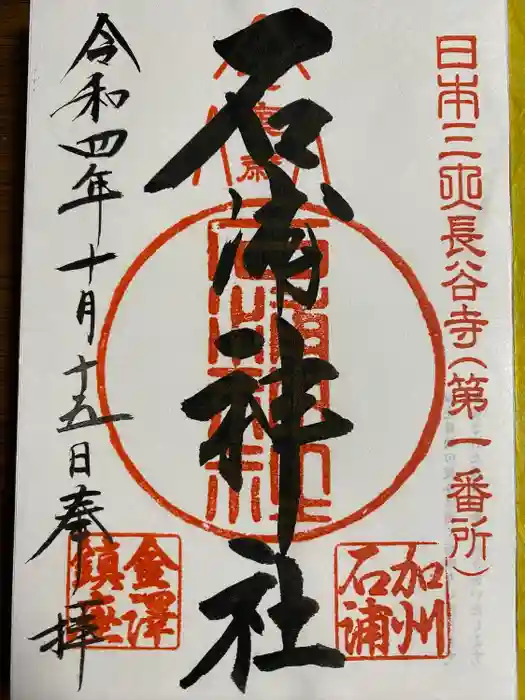 日本三大長谷寺(第一番所)
石浦神社
加州
石浦
令和四年十月十五日奉拝
金澤
鎮座